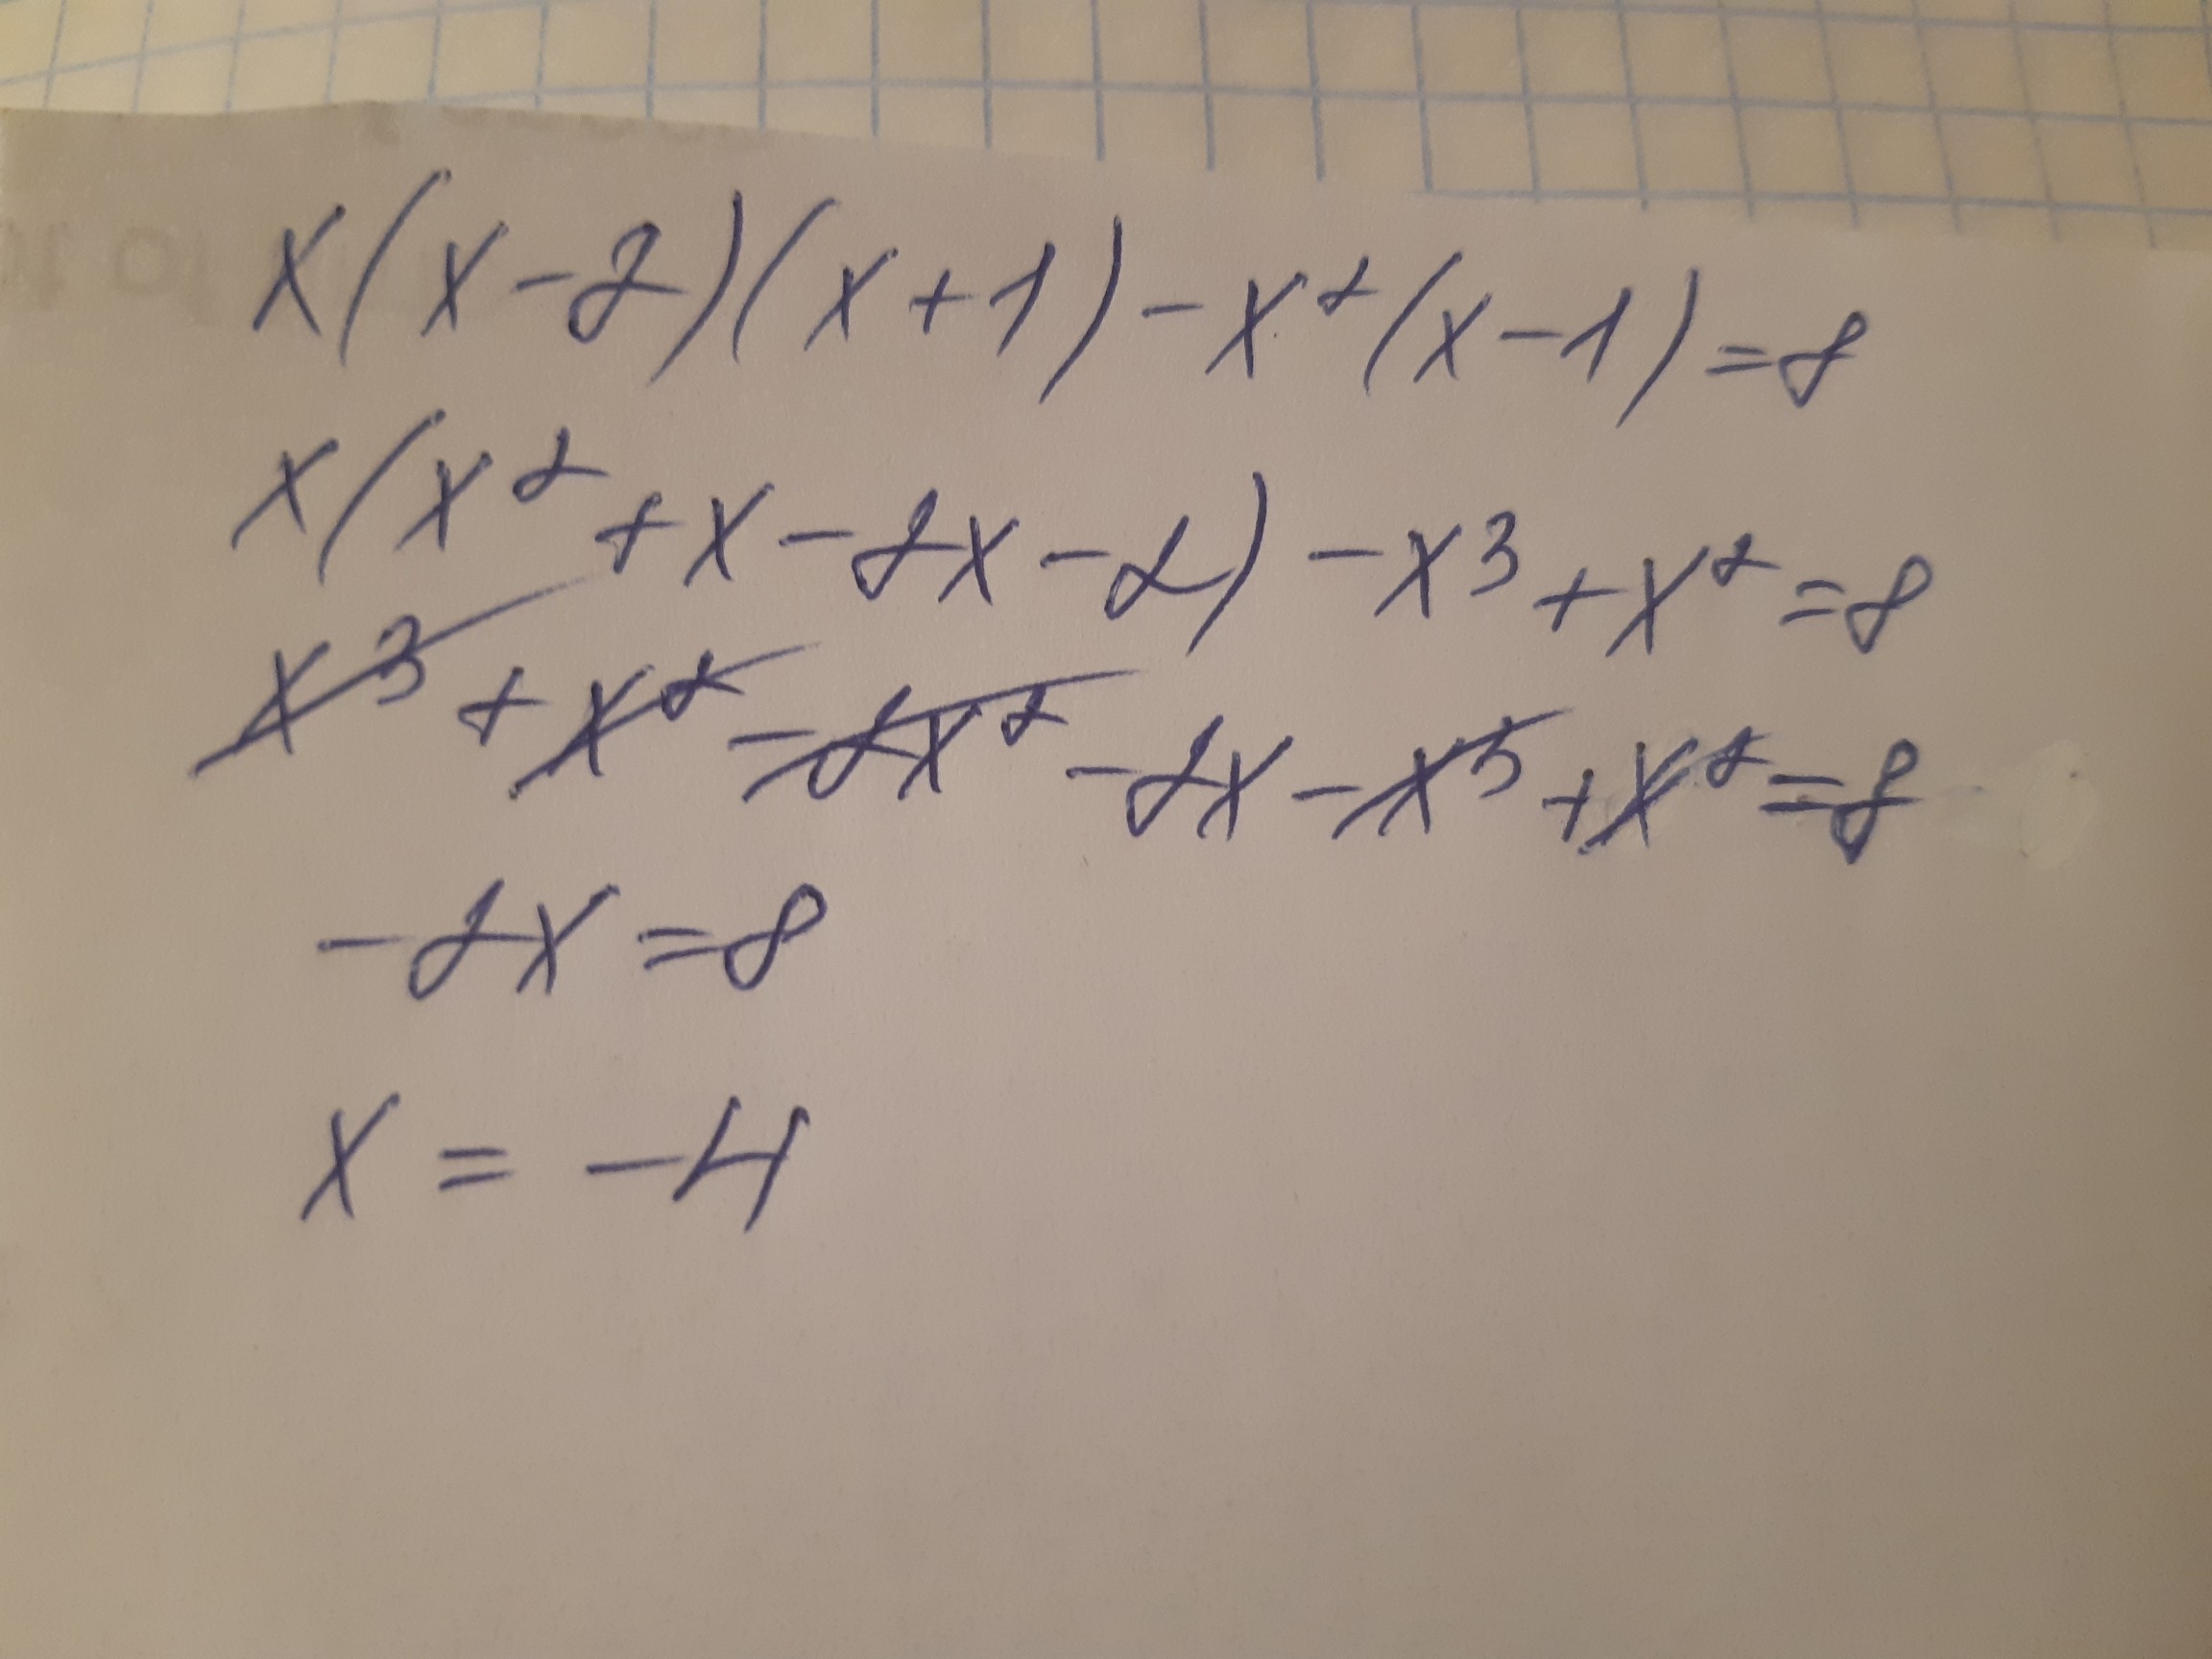 x(x-2)(x+1)-x²(x-1)=8
x(x²+x-2x-2)-x³+x²=8
x³+x²-2x²-2x-x³+x²=8
-2x=8
x=-4